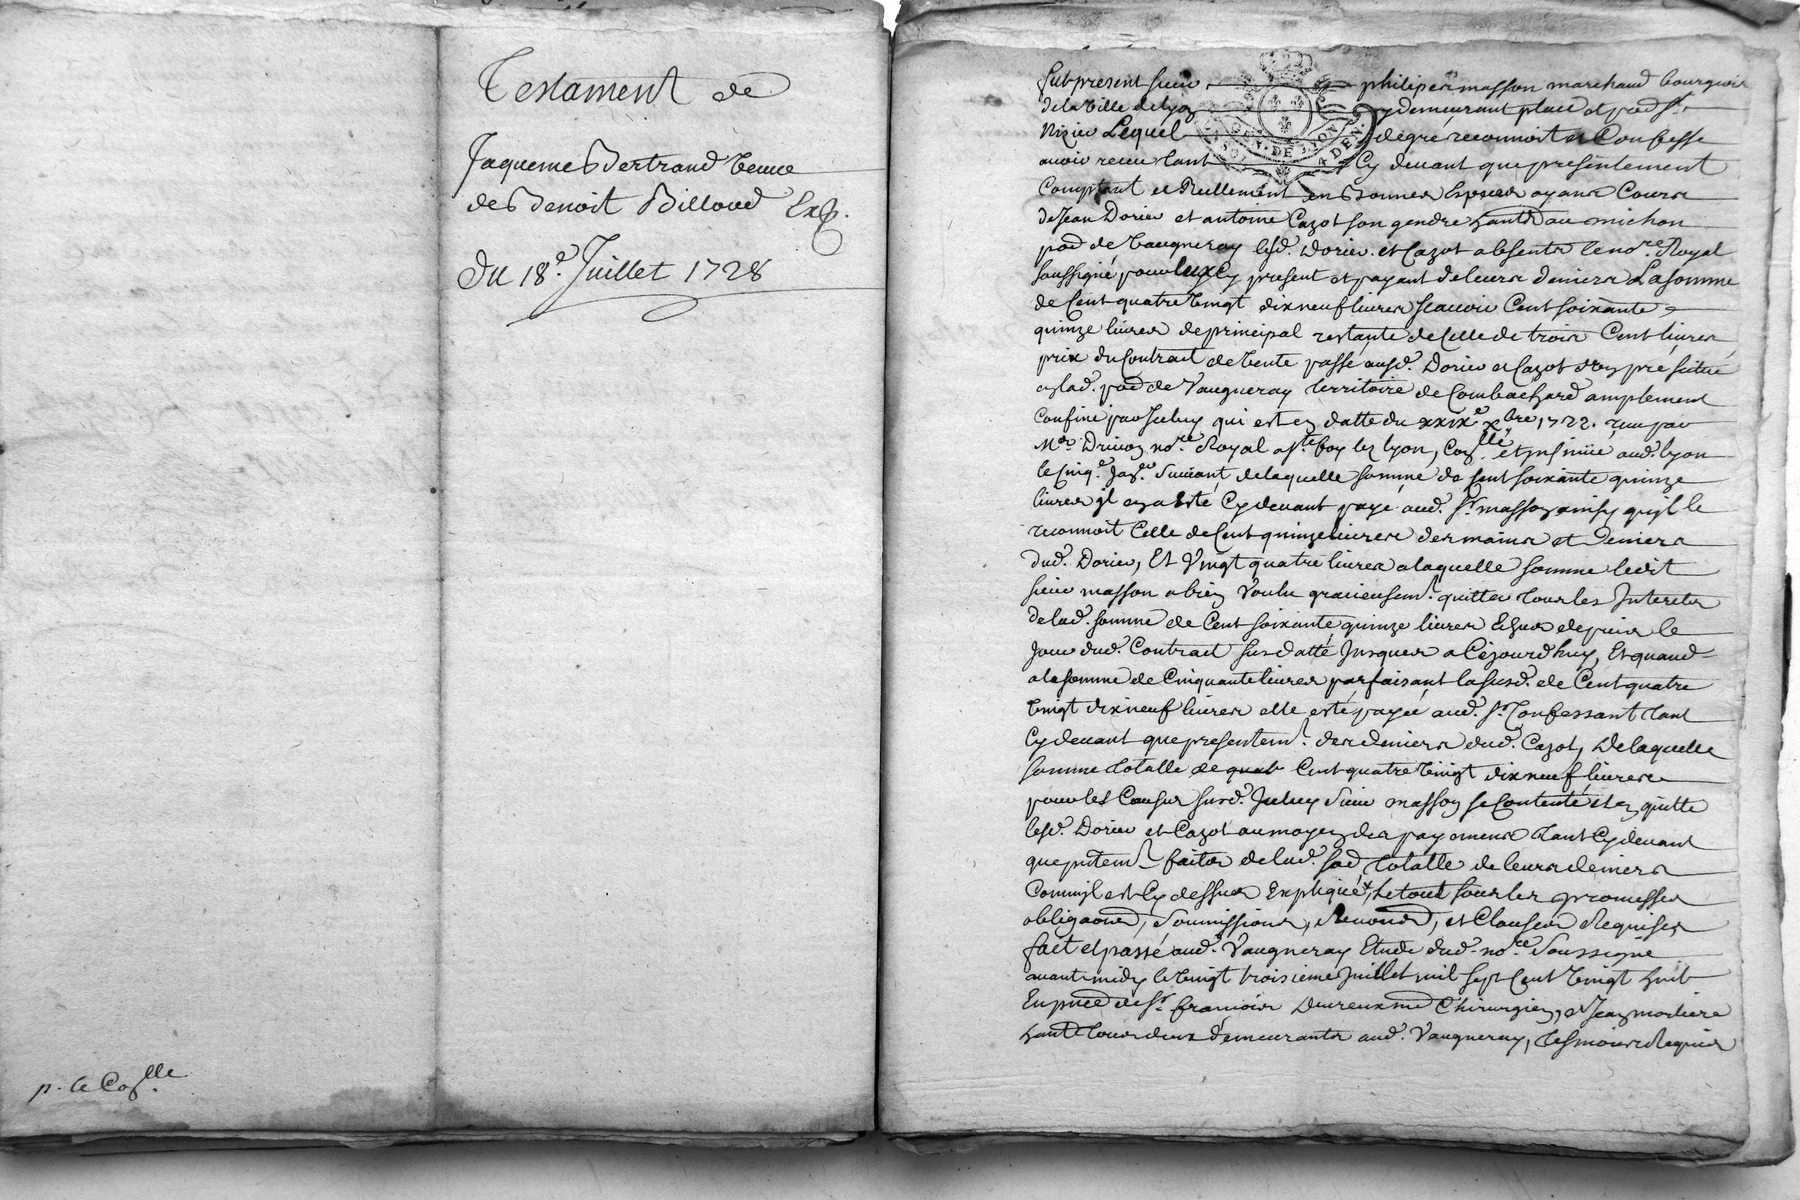 Testament de
Jaqueme Bertrand veuve
de Benoit Billoud Exp.
Du 18e. Juillet 1728
p. le Coñlle.
fut present sieur philiper masson marchand bourgeois
de la ville de lyon y demeurant place et parr St.
Nizier Lequel de gré reconnoit et Confesse
avoir receu tant Cy devant que presentement
Comptant et Reellement en bonnes Especes ayant Cours
de Jean Dorieu et antoine Cazot son gendre habts au michon
parr de Vaugneray lesd. Dorieu et Cazot absents le nore. Royal
soussigné pour eux Cy present et payant de leurs deniers La somme
de Cent quatre vingt dix neuf livres scavoir Cent soixante
quinze livres de principal restante de Celle de trois Cent livres
prix du Contrat de vente passé ausd. Dorieu et Cazot d'un pré situé
en lad. parr de Vaugneray territoire de Combachard amplement
Confiné par Iceluy qui est en datte du xxixe. xbre 1722. receu par
Me. Drivon nore. Royal a ste foy lez lyon, Coñllé et Insinüé aud. lyon
le Cinqe. Janer. suivant, de laquelle somme de Cent soixante quinze
livres il en a été Cy devant payé aud. sr. masson ainsy qu'il le
reconnoit Celle de Cent quinze livres des mains et deniers
dud. Dorieu, Et Vingt quatre livres a laquelle somme ledit
sieur masson a bien Voulu gracieusemt. quitter tous les Interets
de lad. somme de Cent soixante quinze livres Echus depuis le
Jour dud. Contrat susdatté Jusques a Cejourdhuy, Et quand
a la somme de Cinquante livres parfaisant la susd. de Cent quatre
vingt dix neuf livres elle a esté payée aud. sr. Confessant tant
Cy devant que presentemt. des deniers dud. Cazot, De laquelle
somme totalle de Cent quatre vingt dix neuf livres
pour les Causes susd. Iceluy sieur masson se Contente et en quitte
lesd. Dorieu et Cazot au moyen des payemens tant Cy devant
que pntemt. faits de lad. so totalle de leurs deniers
Comm'il est Cy dessus Expliqué, Le tout sous les promesses
obligaons, soumissions, Renons, et Clauses Requises
fait et passé aud. Vaugneray Etude dud. nore. soussigné
avant midy le vingt troisieme Juillet mil sept Cent vingt huit
En pñce de sr. françois Devreux me Chirurgien, et Jean morliere
habts tous deux demeurants aud. Vaugneray, tesmoins Requis